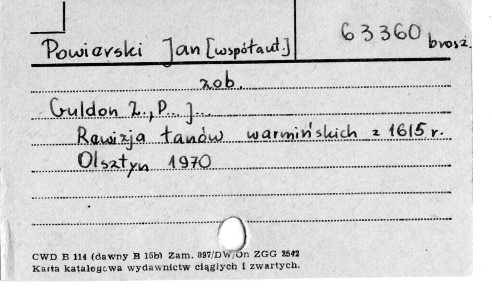 Powierski Jan [współaut.] 63360 brosz.
zob.
Guldon Z., P... J...
Rewizja łanów warmińskich z 1615 r.
Olsztyn 1970
CWD B 114 (dawny B 15b) Zam. 897/DW/On ZGG 2542
Karta katalogowa wydawnictw ciągłych i zwartych.